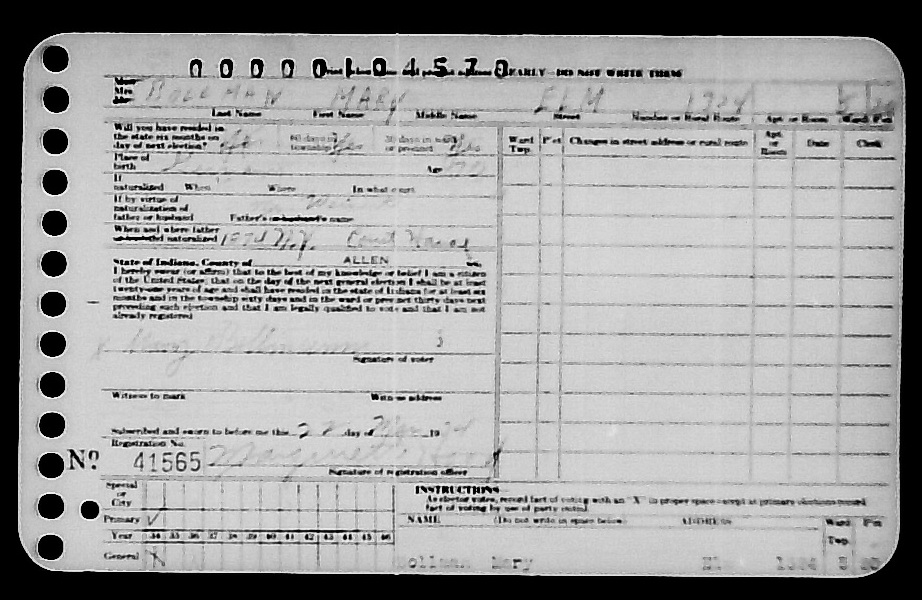 0 0 0 0 0 1 0 4 5 7 0 EARLY - DO NOT WRITE THEM
Mrs. BOLLMAN MARY ELM 1324
Last Name First Name Middle Name Street Number or Rural Route Apt. or Room Ward P'ct
Will you have resided in the state six months on day of next election? 60 days in township Yes 30 days in ward or precinct Yes
Ward Twp. P'ct Changes in street address or rural route Apt. or Room Date Clerk
Place of birth Age
If naturalized When Where In what court
If by virtue of naturalization of father or husband Father's or husband's name
When and where father or husband naturalized N.Y. Court House
State of Indiana, County of ALLEN ss.
I hereby swear (or affirm) that to the best of my knowledge or belief I am a citizen
of the United States; that on the day of the next general election I shall be at least
twenty-one years of age and shall have resided in the state of Indiana for at least six
months and in the township sixty days and in the ward or precinct thirty days next
preceding such election and that I am legally qualified to vote and that I am not
already registered
x Mary Bollmann
Signature of voter
Witness to mark Witness address
Subscribed and sworn to before me this 22 day of Mar 19 34
Registration No.
No 41565 Margaret
Signature of registration officer
Special or City
Primary
Year 34 35 36 37 38 39 40 41 42 43 44 45 46
General X
INSTRUCTIONS
As elector votes, record fact of voting with an "X" in proper space except at primary elections record
fact of voting by use of party noted.
NAME (Do not write in space below) ADDRESS Ward Twp. P'ct
Bollman Mary Elm 1324